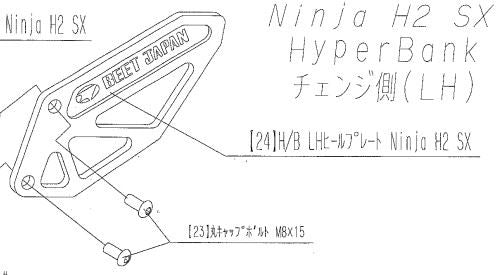 Ninja H2 SX
Ninja H2 SX
HyperBank
チェンジ側(LH)
BEET JAPAN
【24】H/B LHヒールプレート Ninja H2 SX
【23】丸キャップボルト M8×15